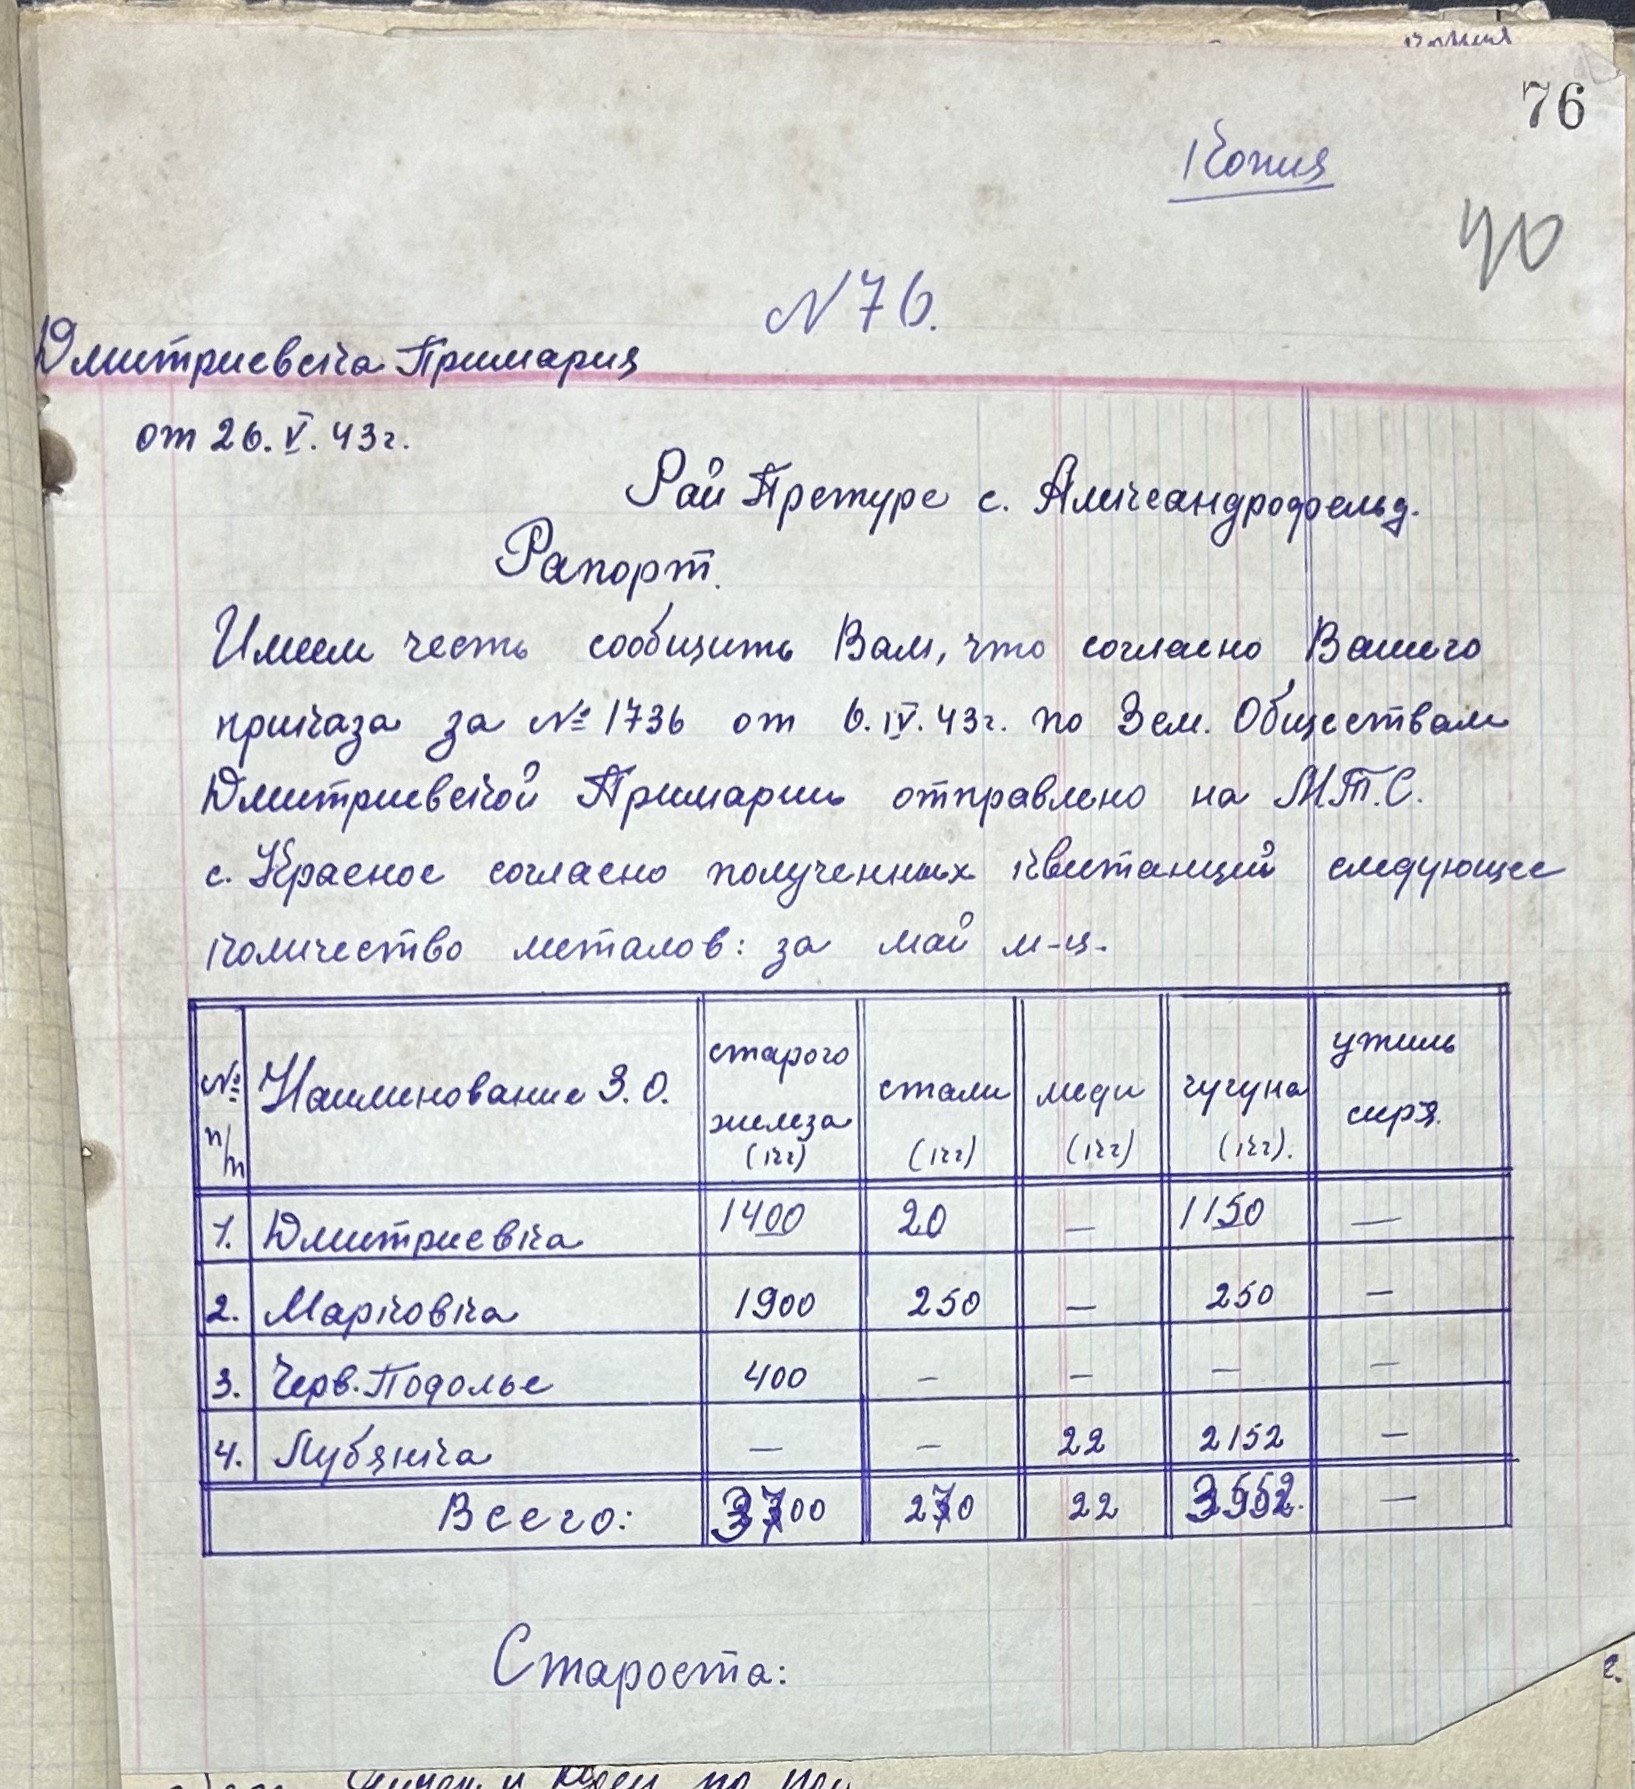 76
Копия
40
N 76.
Дмитриевска Примария
от 26.V.43г.
Рай Претуре с. Александрофельд.
Рапорт.
Имеем честь сообщить Вам, что согласно Вашего
приказа за № 1736 от 6.IV.43г. по Зем. Обществам
Дмитриевской Примарии отправлено на М.Т.С.
с. Красное согласно полученных квитанций следующее
количество металов: за май м-ц.
№ п/п Наименование З.О. старого железа (кг) стали (кг) меди (кг) чугуна (кг). утиль сыря.
1. Дмитриевка 1400 20 — 1150 —
2. Марковка 1900 250 — 250 —
3. Черв. Подолье 400 — — — —
4. Лубянка — — 22 2152 —
Всего: 3700 270 22 3552. —
Староста: